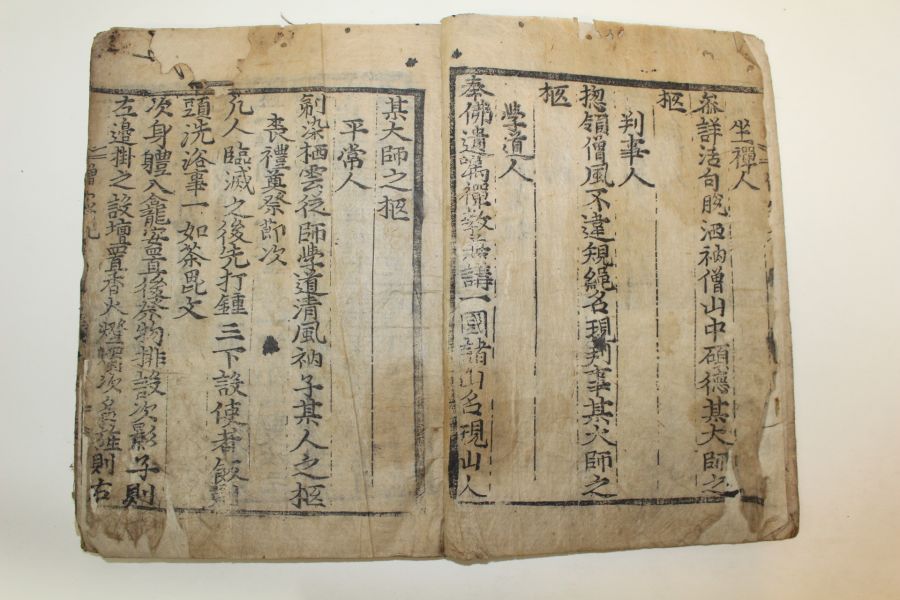 坐禪人
叅詳法句脫洒衲僧山中碩德某大師之
柩
判事人
摠領僧風不違規繩名現判事某大師之
柩
學道人
奉佛遺囑禪教  講一國諸山名現山人
某大師之柩
平常人
剃染栖雲從師學道清風衲子某人之柩
喪禮奠祭節次
凡人臨滅之後先打鍾三下設使者飯
頭洗浴事一如茶毘文
次身體入龕安置後祭物排設次影子則
左邊掛之設壇置香火燈燭次 則右